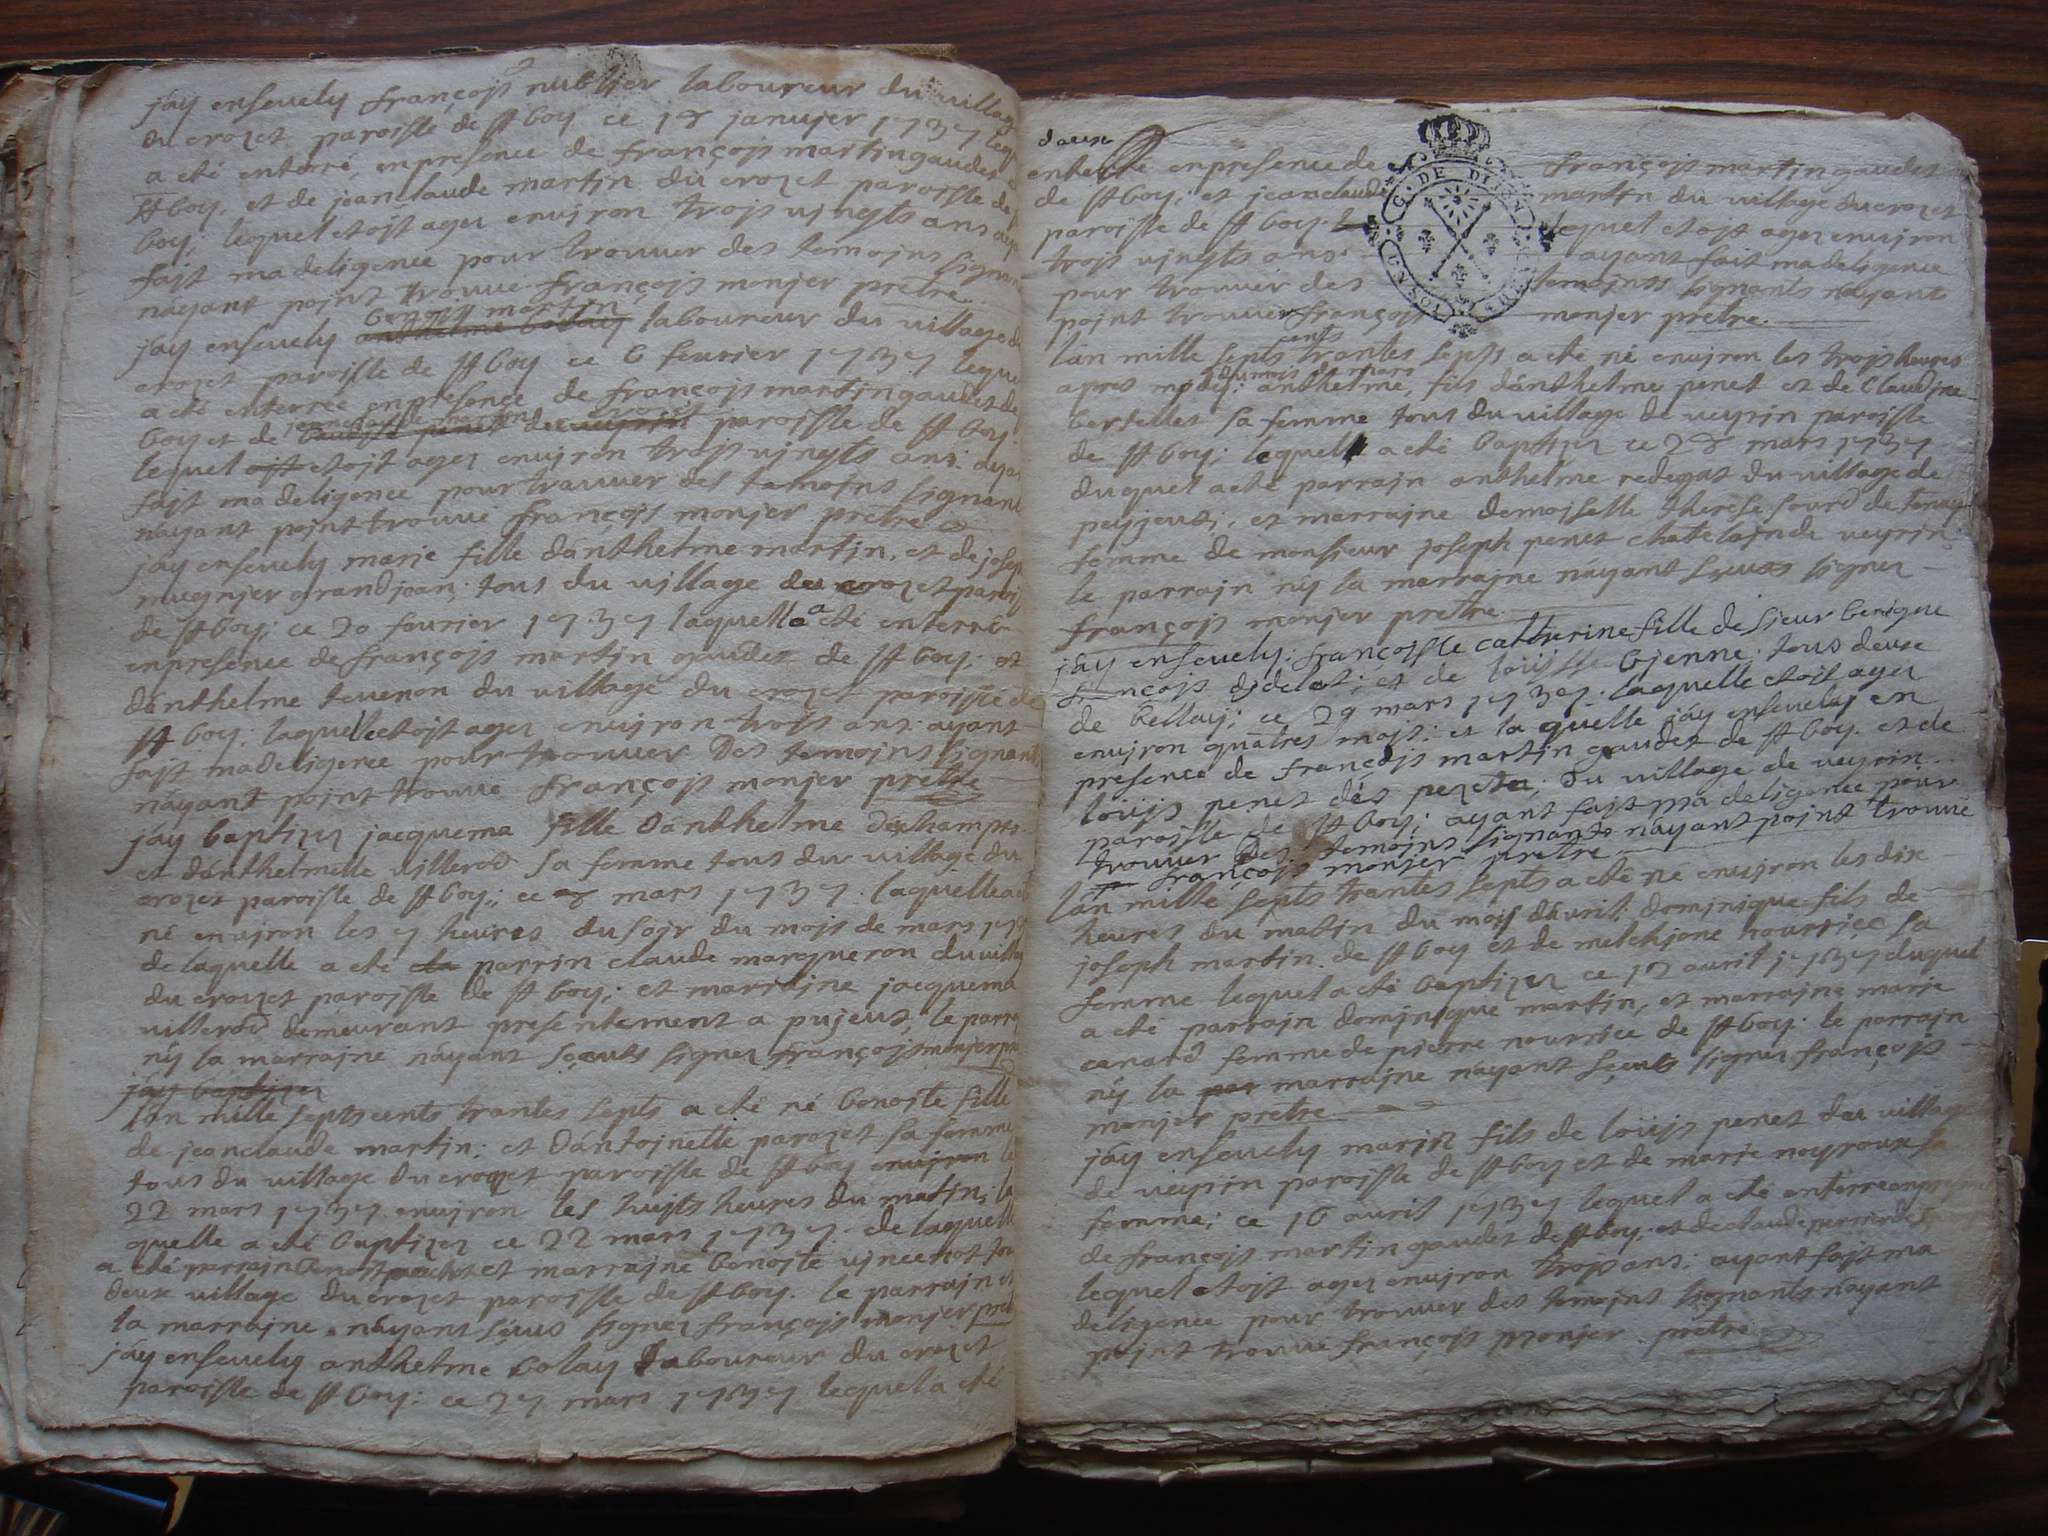 jáy ensevely françojs nublier laboureur du village
du crozet paroisse de st boy ce 18 janvjer 1737 leq
a eté enterré, enpresence de françojs martin gaudet
st boy, et de jeanclaude martin du crozet paroisse de
boy; lequel etojt agez environ trojs vjngts ans aya
fajt madeligence pour trouver des temojns signan
náyant pojnt trouvé françojs monjer pretre
jáy ensevely laboureur du village du
benojt martin
crozet paroisse de st boy ce 6 fevrier 1737 leque
a eté enterrée enpresence de françojs martin gaudet de
boy et de jeanclaude martin du crozet paroisse de st boy.
lequel etojt agez environ trojs vjngts ans. ayan
fajt ma deligence pour trauver des temojns signant
náyant pojnt trouvé françojs monjer pretre
jáy ensevely marje fille dánthelme martin, et de josep
mugnjer grandjean; tous du village du crozet paroi
de st boy; ce 20 fevrier 1737 laquelle a eté enterré
enpresence de françojs martin gaudet de st boy; et
dánthelme tevenon du village du crozet paroisse de
st boy; laquelle etojt agez envjron trojs ans. ayant
fajt madeligence pour trouver des temojns signant
náyant pojnt trouvé françojs monjer pretre
jáy baptizez jacquema fille dánthelme deschamps
et dánthelmille villerod sa femme tous du village du
crozet paroisse de st boy; ce 8 mars 1737. laquelle a et
né envjron les 7 heures dusojr du mojs de mars 173
de laquelle a eté parrin claude marqueron du villag
du crozet paroisse de st boy; et marrajne jacquema
villerod demeurant presentement a pujeus, le parra
nÿ la marrajne náyant sçeuts signez françojs monjer pre
jáy baptizez
lán mille septs cents trantes septs a eté né benojte fille
de jeanclaude martin; et dántojnette parozet sa femme
tous du village du crozet paroisse de st boy envjron le
22 mars 1737 envjron les hujts heures du matin, la
quelle a eté baptizez ce 22 mars 1737. de laquelle
a eté parrajn benojt et marrajne benojte vjncenot tou
deux village du crozet paroisse de st boy. le parrajn et
la marrajne náyant sçeus signez françojs monjer pret
jáy ensevely anthelme bolay laboureur du crozet
paroisse de st boy; ce 27 mars 1737 lequel a eté
deux
enterré enpresence de françojs martin gaudet
de st boy; et jeanclaude martin du village du crozet
paroisse de st boy. lequel etojt agez environ
trojs vjngts ans. ayant fajt madeligence
pour trouver des temojns signants náyant
pojnt trouver françojs monjer pretre
G. DE DIJON
lán mille septs cents trantes septs a eté né envjron les trojs heures
apres mjdy; du mojs de mars anthelme, fils dánthelme penet et de Claudjne
bertelles sa femme tous du village de veyrin paroisse
de st boy; lequel a eté baptizez ce 28 mars 1737
duquel a eté parrajn anthelme redegat du village de
peyjeus; et marrajne demoiselle therese sourd de
femme de monsjeur joseph penet chatelajn de veyrin
le parrajn nÿ la marrajne náyant sçeuts signez
françojs monjer pretre
jáy ensevely; françoisse catherine fille de sjeur benigne
françojs djdelot; et de loüjsse bjenne. tous deux
de bellay; ce 29 mars 1737. laquelle etojt agez
envjron quatres mojs; et la quelle jáy ensevely en
presence de françojs martin gaudet de st boy. et de
loüjs penet dés du village de veyrin
paroisse de st boy; ayant fajt ma deligence pour
trouver des temojns signants náyant pojnt trouvé
françojs monjer pretre
lán mille septs trantes septs a eté né envjron les dix
heures du matin du mojs dávril; dominique fils de
joseph martin de st boy et de melchjone nourrice sa
femme lequel a eté baptizez ce 10 avril 1737 duquel
a eté parrajn dominique martin, et marrajne marje
canard femme de pierre nourrice de st boy. le parrajn
nÿ la marrajne náyant sçeuts signez françojs
monjer pretre
jáy ensevely marjn fils de loüjs penet du village
de veyrin paroisse de st boy et de marje noyroux sa
femme; ce 16 avril 1737 lequel a eté enterré enpresence
de françojs martin gaudet de st boy; et de claude
lequel etojt agez environ trojs ans; ayant fajt ma
deligence pour trouver des temojns signants náyant
pojnt trouvé françojs monjer pretre